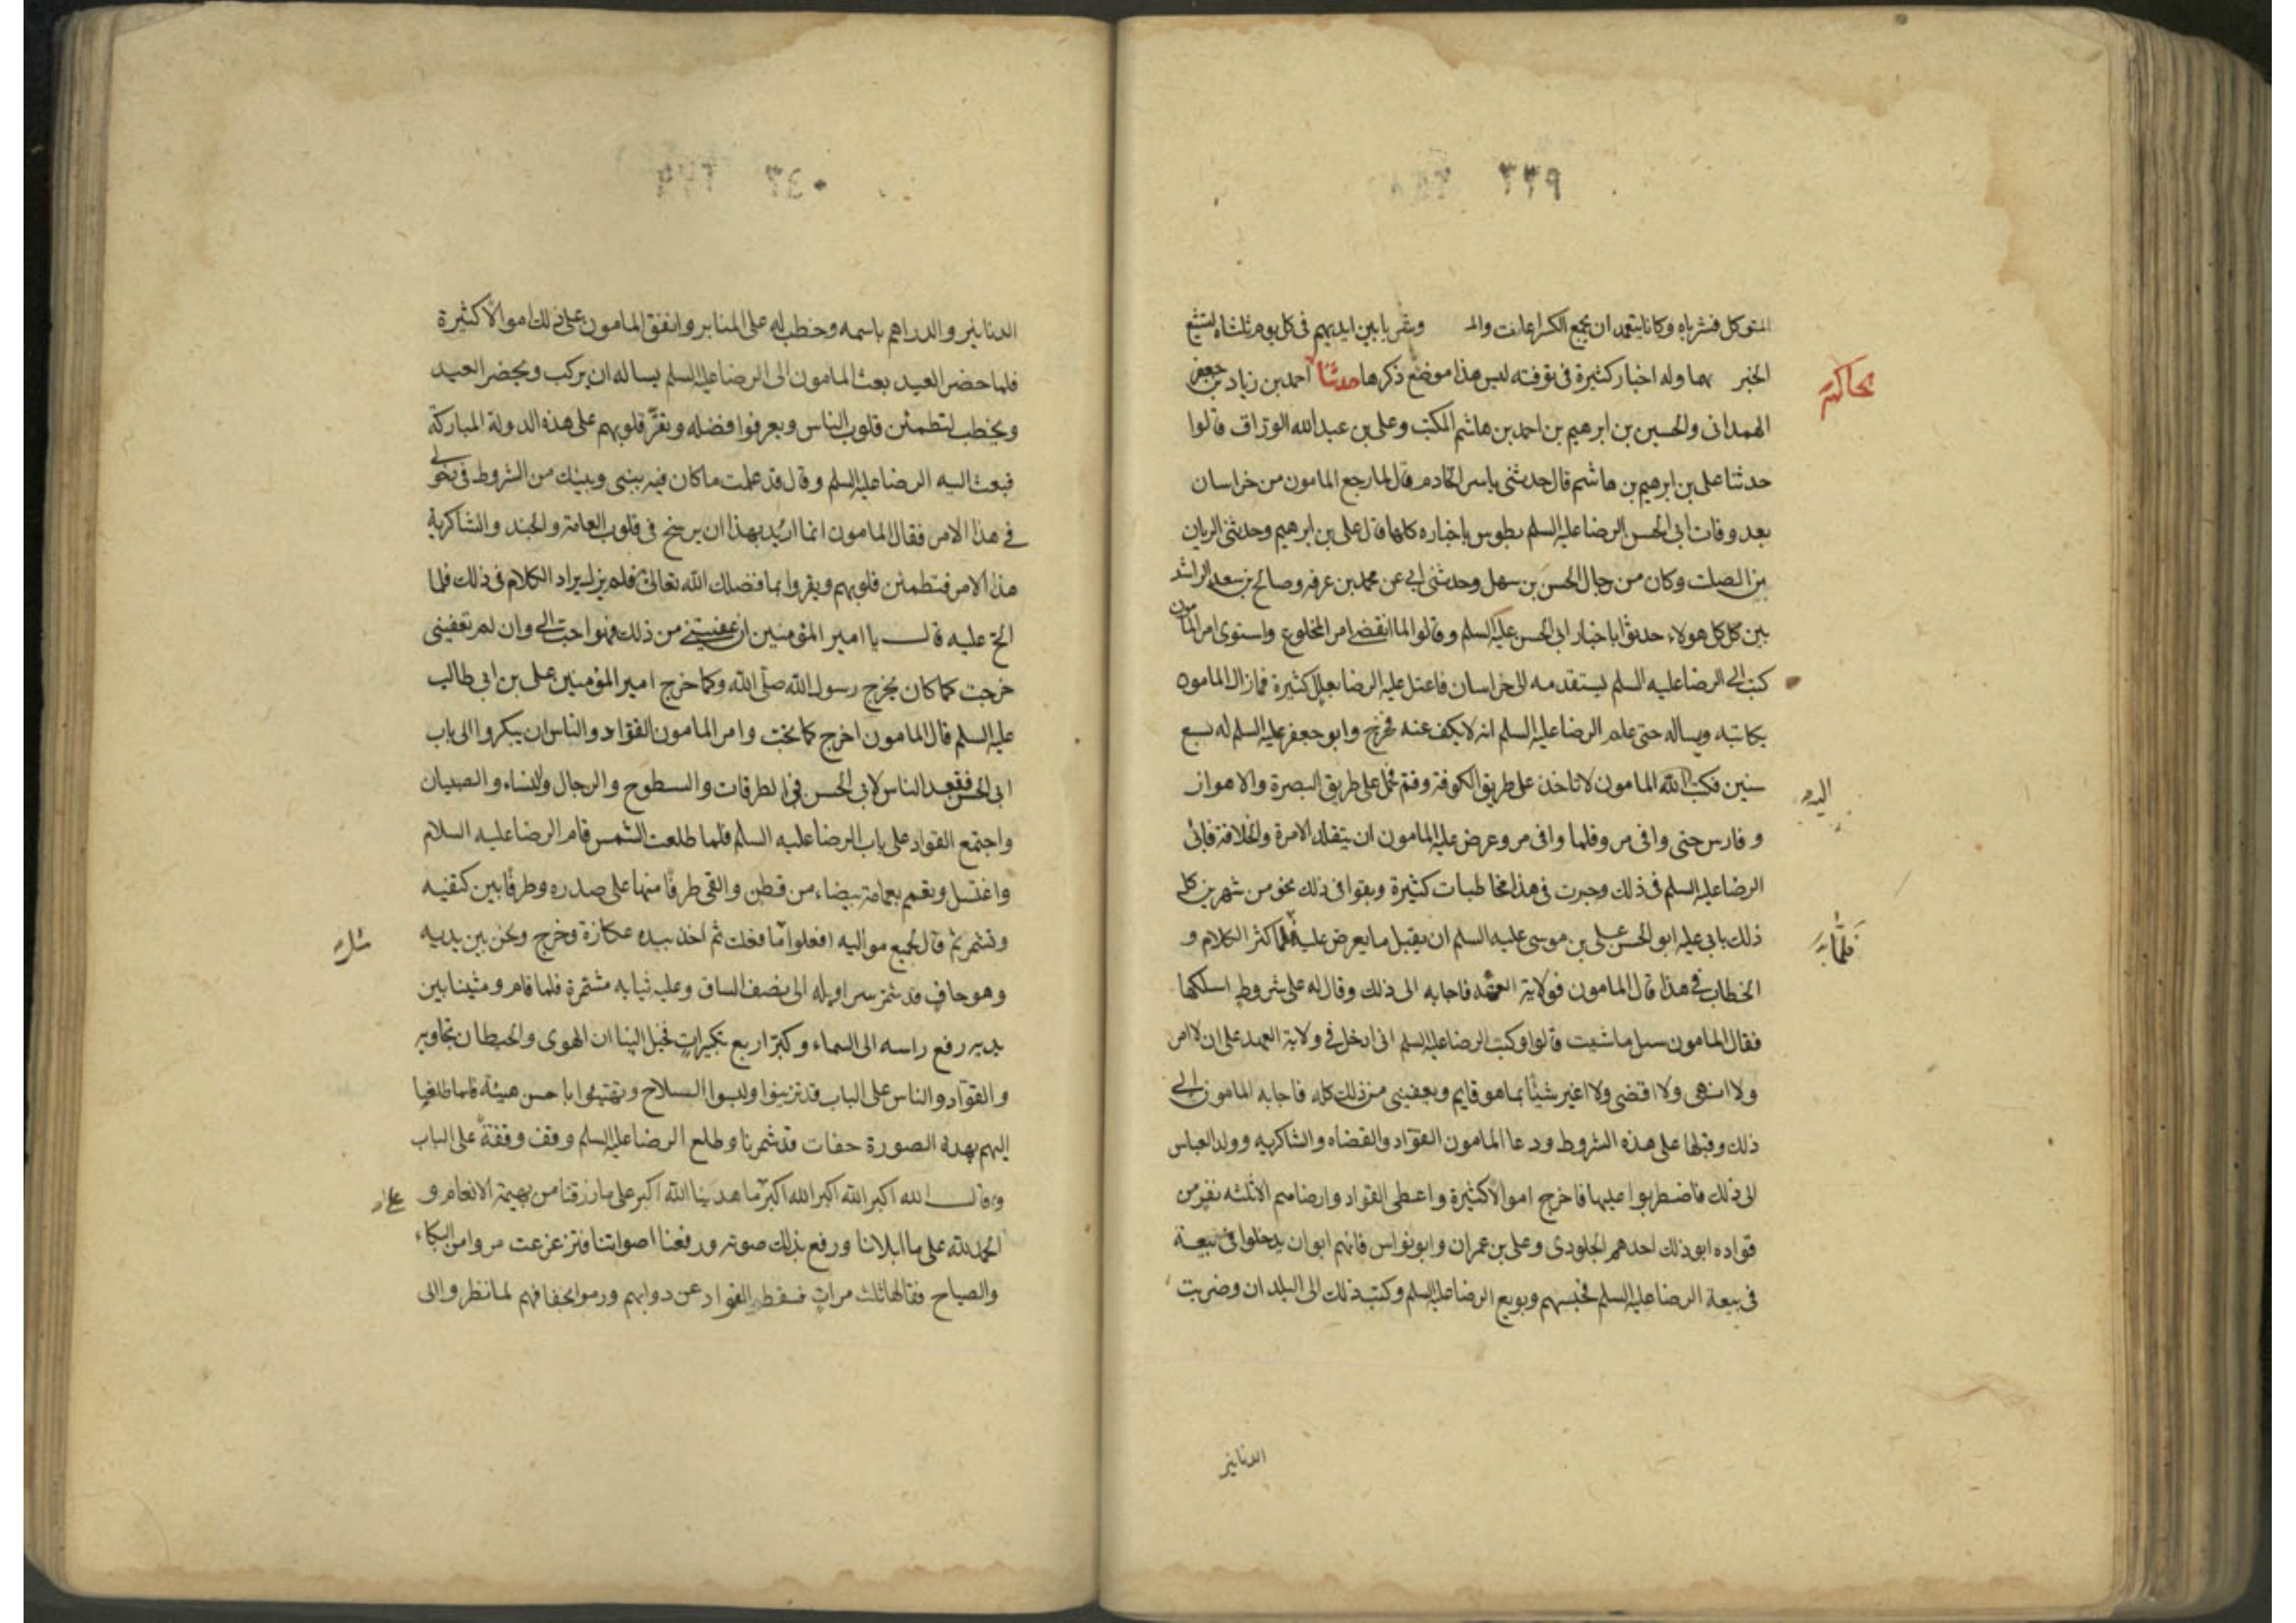 ٣٣٩
المتوكل فنشرباه وكانا يتعمدان يجمع الكراعات والمـ وبقربا بين ايديهم في كل يوم ثلثاء لتشيع
الخبر بهما وله اخبار كثيرة في توقفته ليس هذا موضع ذكرها حدثنا احمد بن زياد بن جعفر
الهمداني والحسين بن ابرهيم بن احمد بن هاشم المكتب وعلى بن عبد الله الوراق قالوا
حدثنا على بن ابرهيم بن هاشم قال حدثنى ياسر الخادم قال لما رجع المامون من خراسان
بعد وفات ابي الحسن الرضا عليه السلم بطوس باخباره كلها قال على بن ابرهيم وحدثنى الريان
بن الصلت وكان من رجال الحسن بن سهل وحدثنى ابي عن محمد بن عرفه وصالح بن سعيد الراشد
بين كل كل هولاء حدثوا باخبار ابي الحسن عليه السلم وقالوا لما انقضى امر المخلوع واستوى امر المامون
كتب الى الرضا عليه السلم يستقدمه الى خراسان فاعتل عليه الرضا بعلل كثيرة فما زال المامون
يكاتبه ويساله حتى علم الرضا عليه السلم انه لا يكف عنه فخرج وابو جعفر عليه السلم له سبع
سنين فكتب الله المامون لا تاخذ على طريق الكوفة وقم فحمل على طريق البصرة والاهواز
اليه
وفارس حتى وافى مرو فلما وافى مرو عرض عليه المامون ان يتقلد الامرة والخلافة فابى
الرضا عليه السلم في ذلك وجرت في هذا مخاطبات كثيرة وبقوا في ذلك نحو من شهرين كل
ذلك يابى عليه ابو الحسن على بن موسى عليه السلم ان يقبل ما يعرض عليه فلما كثر الكلام و
الخطاب في هذا قال المامون فولاية العهد فاجابه الى ذلك وقال له على شروط اسلكها
فقال المامون سل ما شيت قالوا وكتب الرضا عليه السلم انى ادخل في ولاية العهد على ان لا امر
ولا انهى ولا اقضى ولا اغير شيئا مما هو قايم وبعفينى من ذلك كله فاجابه المامون الى
ذلك وقبلها على هذه الشروط ودعا المامون القواد والقضاه والشاكريه وولد العباس
الى ذلك فاضطربوا عليها فاخرج اموالا كثيرة واعطى القواد وارضاهم الا ثلثه نفر من
قواده ابو ذلك احدهم الجلودى وعلى بن عمران وابو نواس فانهم ابوا ان يدخلوا في بيعة
في بيعة الرضا عليه السلم فحبسهم وبويع الرضا عليه السلم وكتب ذلك الى البلدان وضربت
الدنانير
الدنانير والدراهم باسمه وخطب له على المنابر وانفق المامون على ذلك اموالا كثيرة
فلما حضر العيد بعث المامون الى الرضا عليه السلم يساله ان يركب ويحضر العيد
ويخطب لتطمئن قلوب الناس ويعرفوا فضله وتقر قلوبهم على هذه الدولة المباركة
فبعث اليه الرضا عليه السلم وقال قد علمت ما كان فيه بينى وبينك من الشروط في دخولى
في هذا الامر فقال المامون انما اريد بهذا ان يرسخ في قلوب العامة والجند والشاكرية
هذا الامر فتطمئن قلوبهم ويقروا بما فضلك الله تعالى فلم يزل يراد الكلام في ذلك فلما
الح عليه قال يا امير المؤمنين ان عفيتنى من ذلك فهو احب الى وان لم تعفينى
خرجت كما كان يخرج رسول الله صلى الله وكما خرج امير المؤمنين على بن ابي طالب
عليه السلم قال المامون اخرج كما تحب وامر المامون القواد والناس ان يبكروا الى باب
ابي الحسن فقعد الناس لابي الحسن في الطرقات والسطوح والرجال والنساء والصبيان
واجتمع القواد على باب الرضا عليه السلم فلما طلعت الشمس قام الرضا عليه السلام
واغتسل وتعمم بعمامة بيضاء من قطن والقى طرفا منها على صدره وطرفا بين كتفيه
وتشمر ثم قال لجميع مواليه افعلوا ما فعلت ثم اخذ بيده عكازة وخرج ونحن بين يديه
وهو حاف قد شمر سراويله الى نصف الساق وعليه ثيابه مشتمرة فلما قام ومشينا بين
يديه رفع راسه الى السماء وكبر اربع تكبيرات فخيل الينا ان الهوى والحيطان تجاوبه
والقواد والناس على الباب قد تزينوا ولبسوا السلاح وتهتيئوا باحسن هيئة فلما طلعنا
اليهم بهذه الصورة حفات قد شمرنا وطلع الرضا عليه السلم وقف وقفة على الباب
وقال الله اكبر الله اكبر الله اكبر ما هدينا الله اكبر على ما رزقنا من بهيمة الانعام و
الحمد لله على ما ابلانا ورفع بذلك صوته ورفعنا اصواتنا فتزعزعت مرو من البكاء
والصياح فقالها ثلث مرات فسقط القواد عن دوابهم ورموا بخفافهم لما نظروا الى